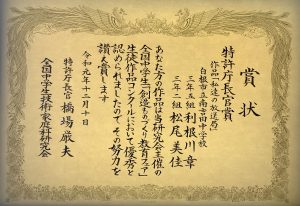 賞状
特許庁長官賞
作品「私達の放送局」
白根市立南吉田中学校
三年五組 利根川 章
三年二組 松尾 美佳
あなた方の作品は当研究会主催の
全国中学生「創造ものづくり教育フェア」
生徒作品コンクールにおいて優秀と
認められましたのでその努力を
讃え賞します
令和元年十二月十日
特許庁長官 橋場 厳夫
全国中学生技術家庭科研究会